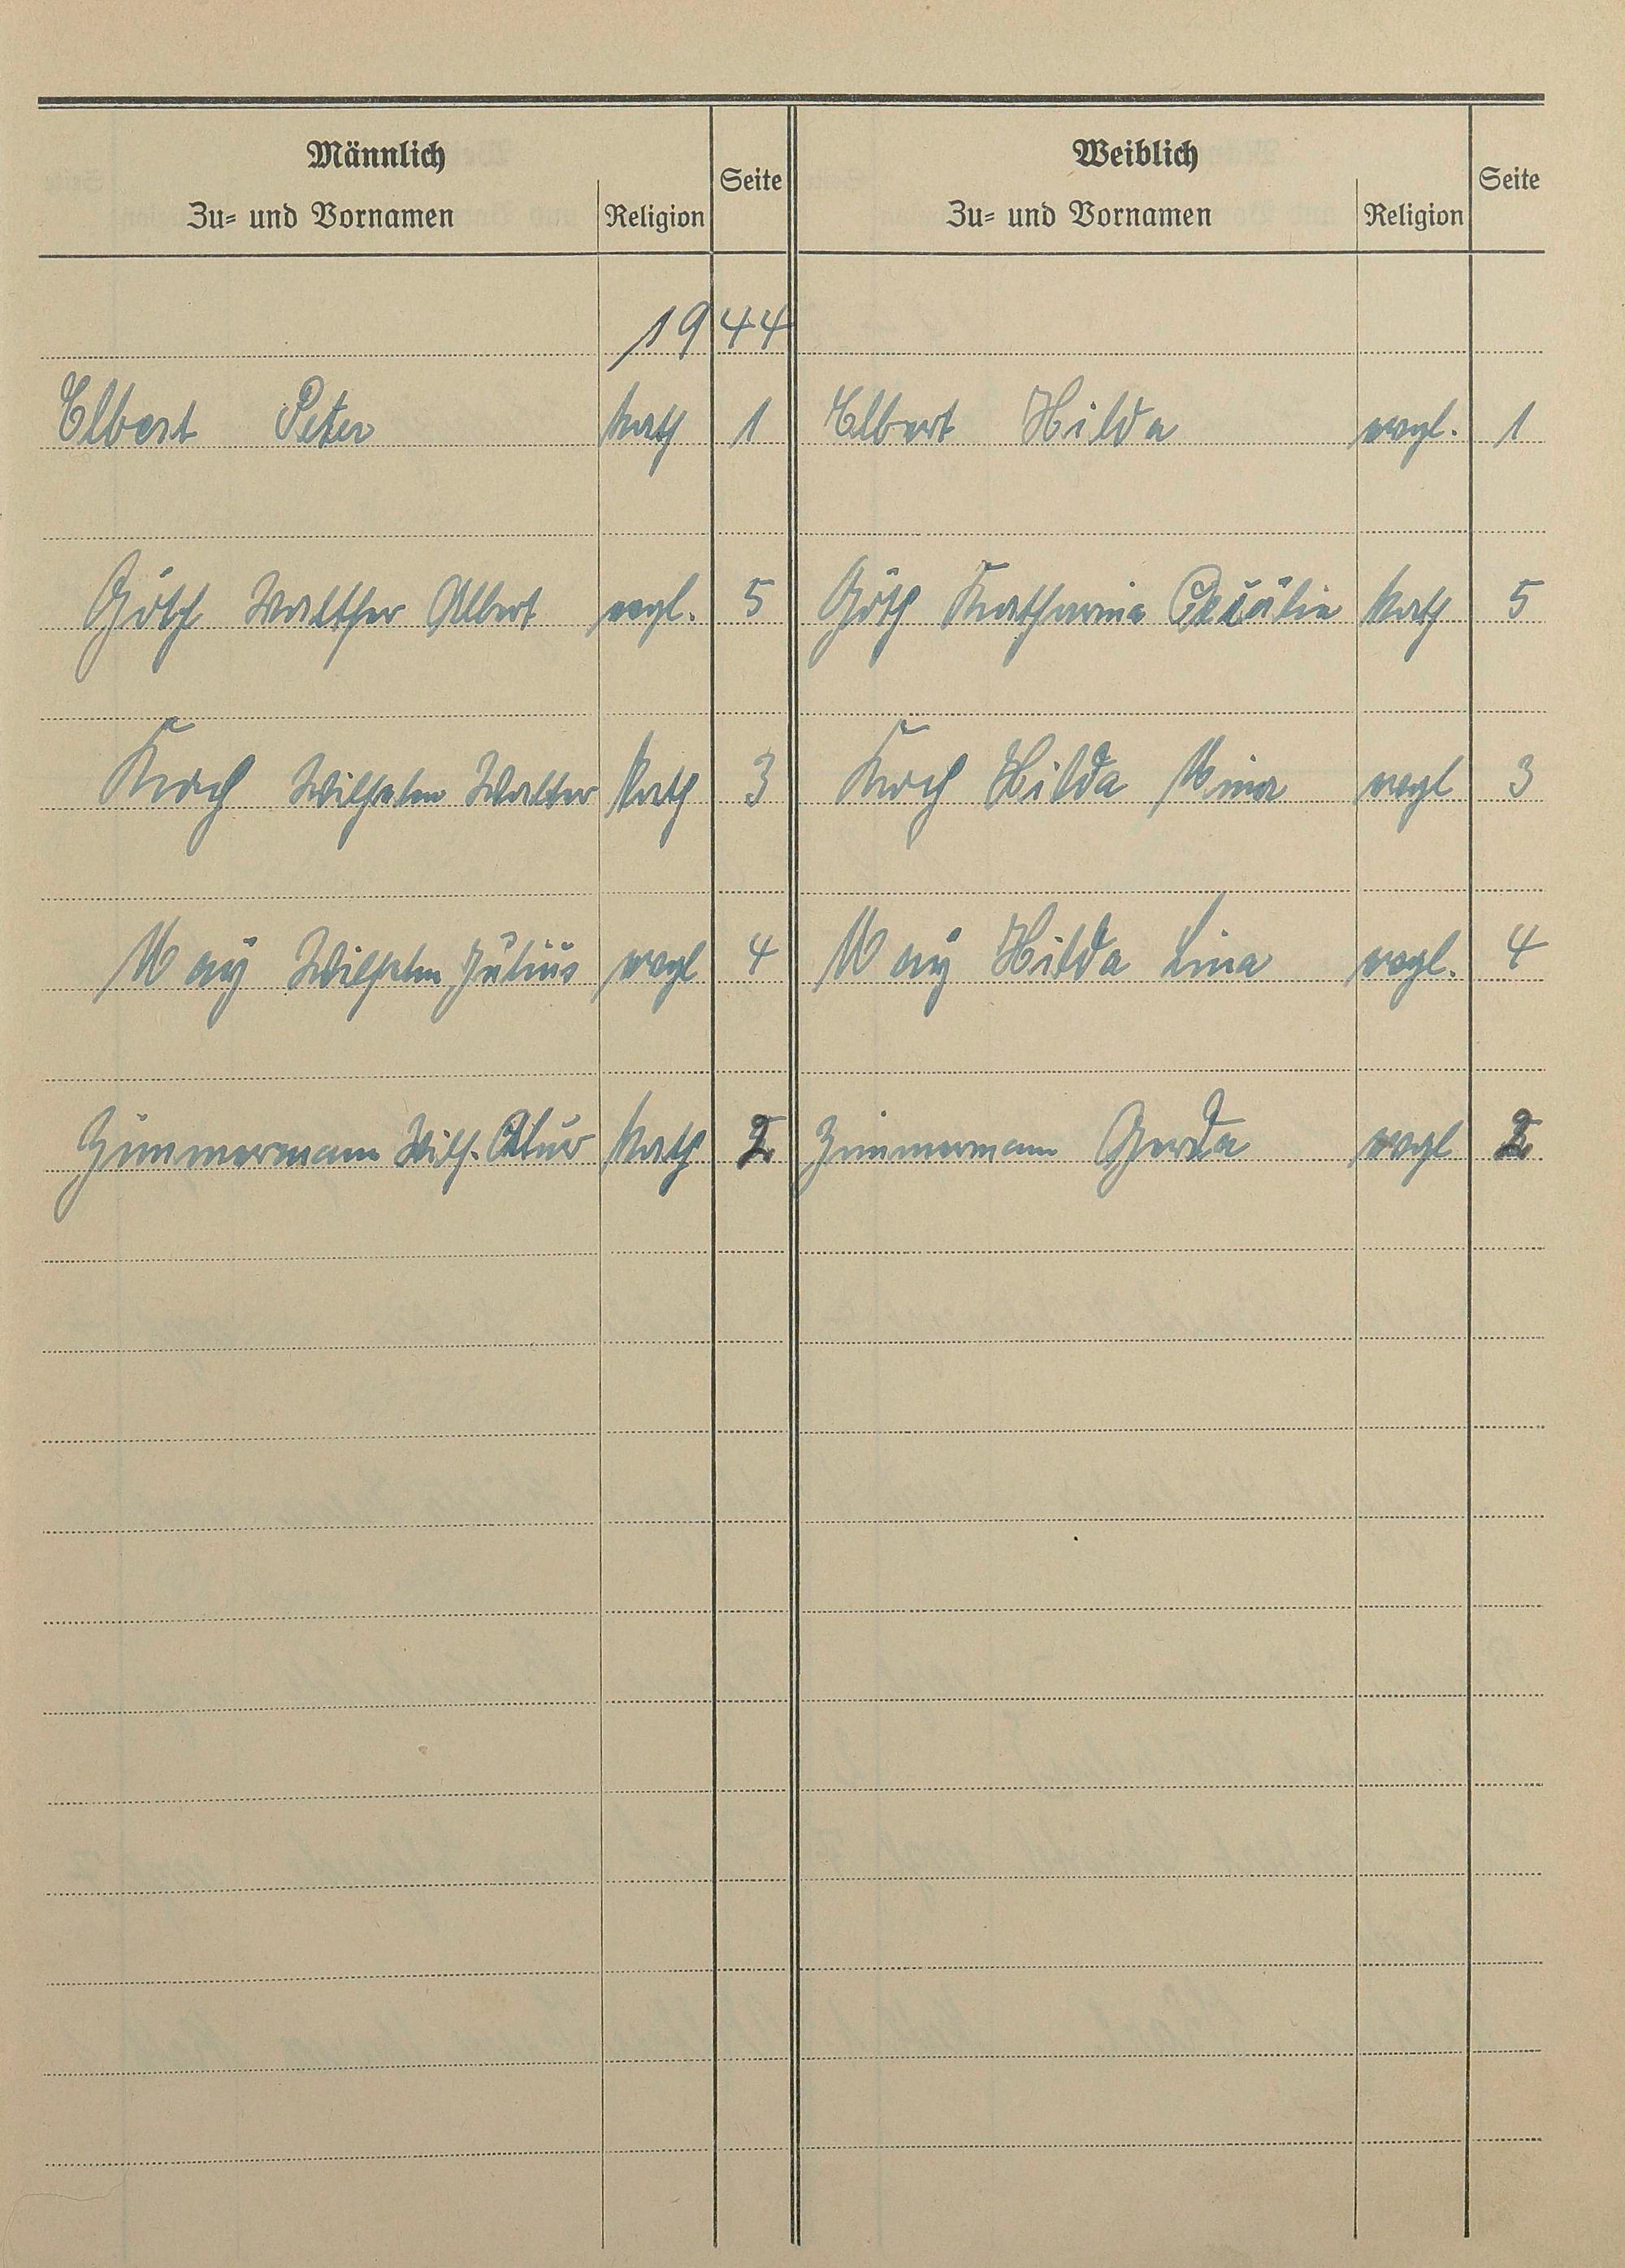 Männlich Weiblich
Seite Seite
Zu- und Vornamen Religion Zu- und Vornamen Religion
1944
Elbert Peter kath 1 Elbert Hilda evgl. 1
Göth Walther Albert evgl. 5 Göth Katharina Cäcilie kath 5
Koch Wilhelm Walter kath 3 Koch Hilda Mina evgl 3
May Wilhelm Julius evgl 4 May Hilda Lina evgl. 4
Zimmermann Wilh. kath 2 Zimmermann Gerda evgl 2